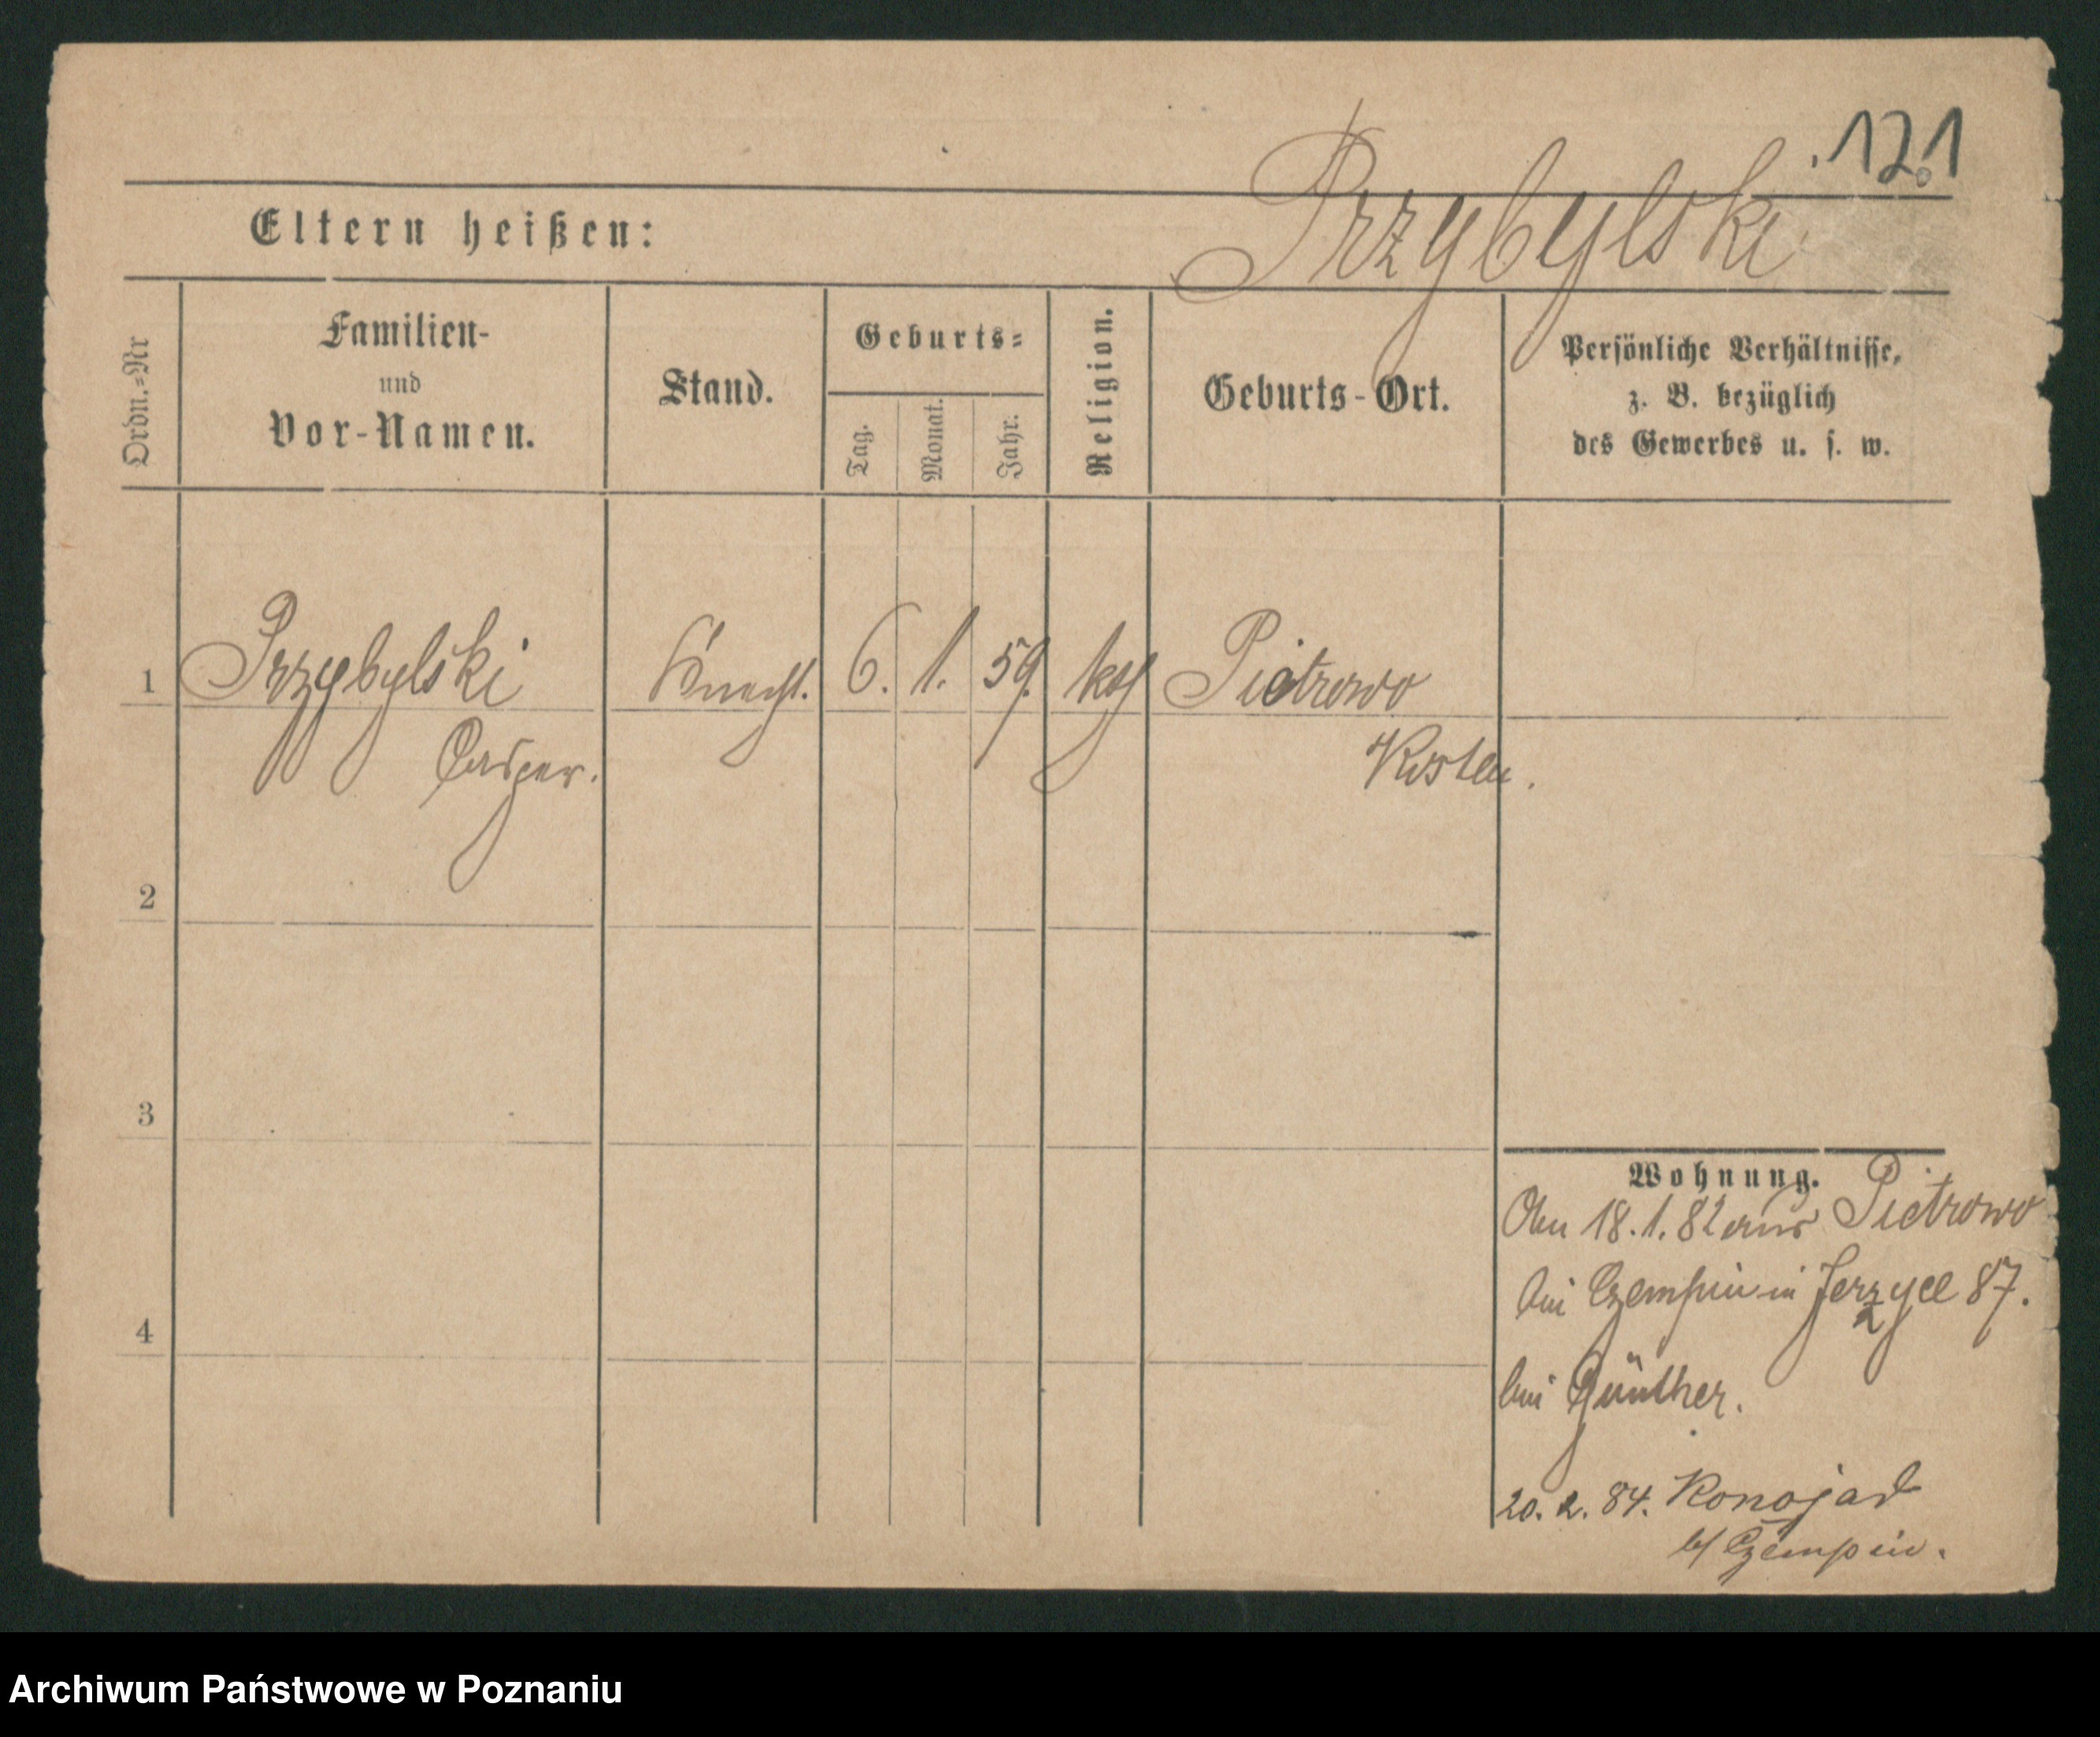 121
Eltern heißen:
Przybylski
Ordn.=Nr
Familien-
und
Vor-Namen.
Stand.
Geburts=
Tag.
Monat.
Jahr.
Religion.
Geburts-Ort.
Persönliche Verhältnisse,
z. B. bezüglich
des Gewerbes u. s. w.
1 Przybylski Knecht. 6. 1. 59. kth Piotrowo
Casper. Kosten.
2
3
4
Wohnung.
Am 18.1.82 aus Pietrowo
bei Czempin in Jerzyce 87.
bei Günther.
20. 2. 84. Konojad
b/ Czempin.
Archiwum Państwowe w Poznaniu